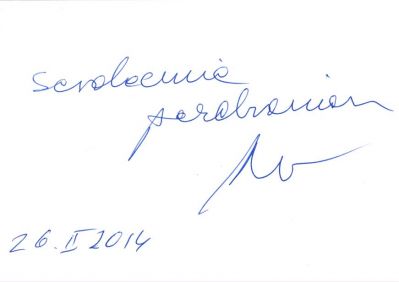 Serdecznie
pozdrawiam
26. II 2014